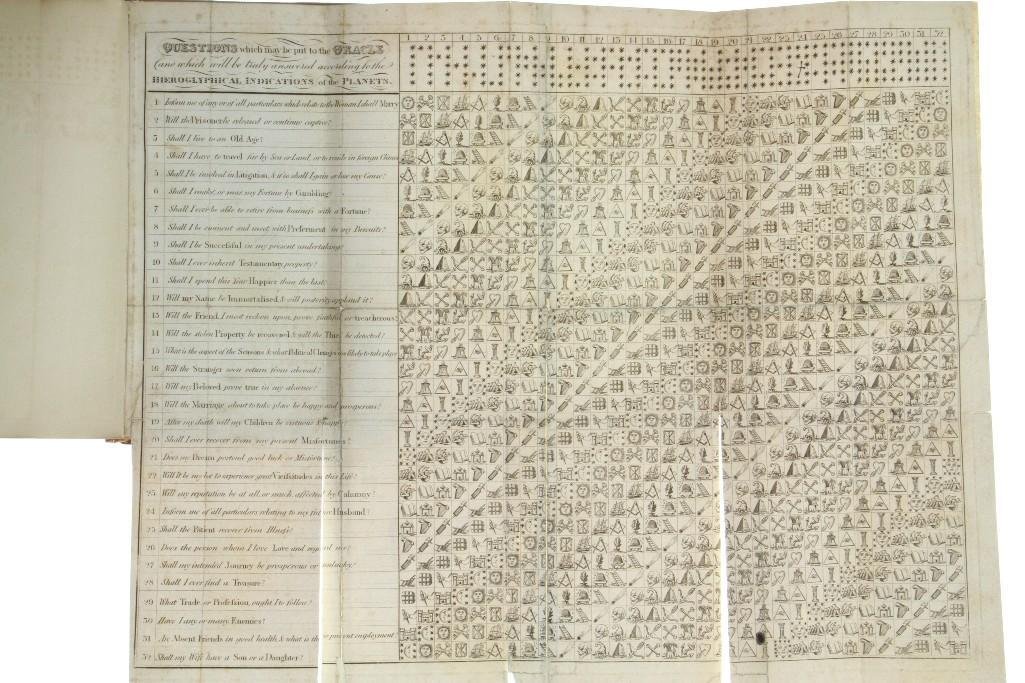 QUESTIONS which may be put to the ORACLE
(and which will be truly answered according to the)
HIEROGLYPHICAL INDICATIONS of the PLANETS.
1 2 3 4 5 6 7 8 9 10 11 12 13 14 15 16 17 18 19 20 21 22 23 24 25 26 27 28 29 30 31 32
1 Inform me of any or of all particulars which relate to the Woman I shall Marry
2 Will the Prisoner be released or continue captive?
3 Shall I live to an Old Age?
4 Shall I have to travel far by Sea or Land, or to reside in foreign Climes
5 Shall I be involved in Litigation, & if so shall I gain or lose my Cause?
6 Shall I make, or mar, my Fortune by Gambling?
7 Shall I ever be able to retire from business with a Fortune?
8 Shall I be eminent and meet with Preferment in my Pursuits?
9 Shall I be Succefsful in my present undertaking?
10 Shall I ever inherit Testamentary property?
11 Shall I spend this Year Happier than the last?
12 Will my Name be Immortalised & will posterity applaud it?
13 Will the Friend, I most reckon upon, prove faithful or treacherous?
14 Will the stolen Property be recovered & will the Thief be detected?
15 What is the aspect of the Seasons & what Political Changes are likely to take place
16 Will the Stranger soon return from abroad?
17 Will my Beloved prove true in my absence?
18 Will the Marriage about to take place be happy and prosperous?
19 After my death will my Children be virtuous & happy?
20 Shall I ever recover from my present Misfortunes?
21 Does my Dream portend good luck or Misfortune?
22 Will it be my lot to experience great Vicifsitudes in this Life?
23 Will my reputation be at all or much affected by Calumny?
24 Inform me of all particulars relating to my future Husband?
25 Shall the Patient recover from Illnefs?
26 Does the person whom I love Love and regard me?
27 Shall my intended Journey be prosperous or unlucky?
28 Shall I ever find a Treasure?
29 What Trade or Profefsion, ought I to follow?
30 Have I any or many Enemies?
31 Are Absent Friends in good health & what is their present employment
32 Shall my Wife have a Son or a Daughter?